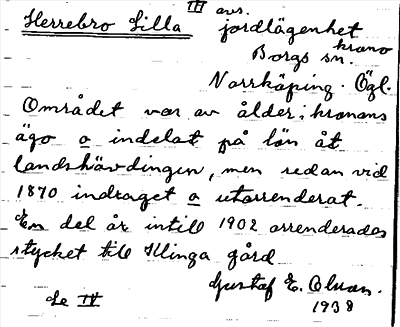 Herrebro Lilla III avs.
jordlägenhet
Borgs sn. krono
Norrköping. Ögl.
Området var av ålder i kronans
ägo o indelat på lön åt
landshövdingen, men redan vid
1870 indraget o utarrenderat.
En del år intill 1902 arrenderades
stycket till Illinga gård
Gustaf E. Olson.
Le IV 1938